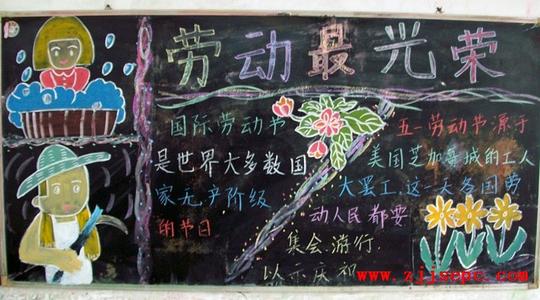 劳动最光荣
国际劳动节
是世界大多数国
家无产阶级
的节日
五一劳动节源于
美国芝加哥城的工人
大罢工,这一天各国劳
动人民都要
集会,游行,
以示庆祝